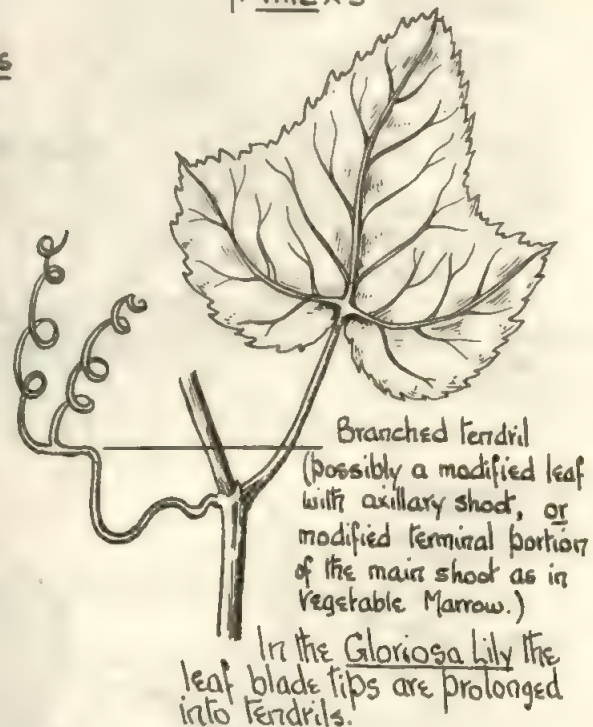 VINE x 3
Branched tendril
(possibly a modified leaf
with axillary shoot, or
modified terminal portion
of the main shoot as in
Vegetable Marrow.)
In the Gloriosa Lily the
leaf blade tips are prolonged
into tendrils.